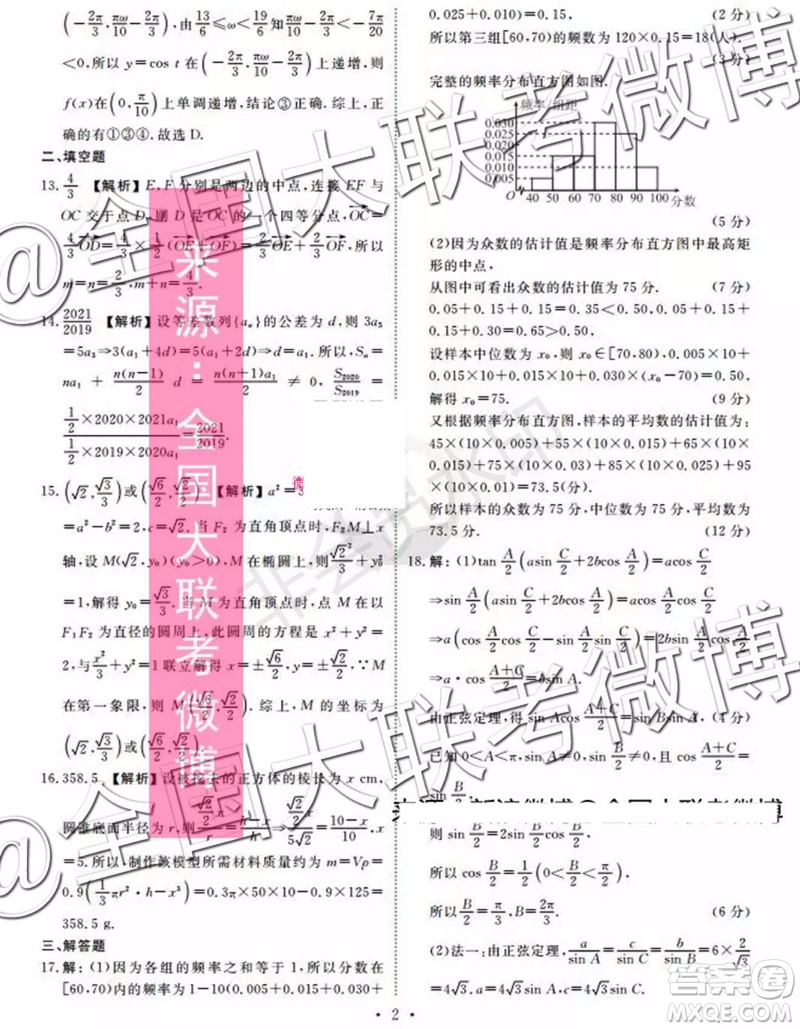 (-2π/3, πω/10 - 2π/3), 由 13/6 ≤ω< 19/6 知 πω/10 - 2π/3 < -7π/20
<0,所以 y=cos t 在(-2π/3, πω/10 - 2π/3)上递增,则
f(x)在(0, π/10)上单调递增,结论③正确. 综上,正
确的有①③④. 故选 D.
二、填空题
13. 4/3 【解析】E、F 分别是两边的中点,连接 EF 与
OC 交于点 D,则 D 是 OC 的一个四等分点,
m=n=2/3, m+n=4/3.
14. 2021/2019 【解析】设等差数列{aₙ}的公差为 d,则 3a₅
=5a₃⇒3(a₁+4d)=5(a₁+2d)⇒a₁=d. 所以,Sₙ=
na₁+ n(n-1)/2 d = n(n+1)a₁/2 ≠0, S₂₀₂₀/S₂₀₁₉
(1/2×2020×2021a₁)/(1/2×2019×2020a₁) = 2021/2019.
15. (√2, √3/3)或(√6/2, √2/2) 【解析】a²=3
=a²-b²=2,c=√2. 当 F₂ 为直角顶点时,F₂M⊥x
轴,设 M(√2,y₀)(y₀>0),在椭圆上,所以 √2²/3+y₀²
=1,解得 y₀=√3/3; 当 M 为直角顶点时,点 M 在以
F₁F₂ 为直径的圆周上,此圆周的方程为 x²+y²=
2,与 x²/3+y²=1 联立解得 x=±√6/2,y=±√2/2,∵M
在第一象限,则 M(√6/2, √2/2). 综上,M 的坐标为
(√2, √3/3)或(√6/2, √2/2).
16. 358.5 【解析】设被挖去的正方体的棱长为 x cm,
圆锥底面半径为 r,则 (√2/2 x)/r = (h-x)/h ⇒ (√2/2 x)/(5√2) = (10-x)/10 ⇒
x=5. 所以,制作该模型所需材料质量约为 m=Vρ=
0.9(1/3πr²·h-x³)=0.3×π×50×10-0.9×125=
358.5 g.
三、解答题
17. 解:(1)因为各组的频率之和等于 1,所以分数在
[60,70)内的频率为 1-10(0.005+0.015+0.030+
0.025+0.010)=0.15, (2 分)
所以第三组[60,70)的频数为 120×0.15=18(人).
(3 分)
完整的频率分布直方图如图.
频率/组距
0.030
0.025
0.020
0.015
0.010
0.005
O 40 50 60 70 80 90 100 分数
(5 分)
(2)因为众数的估计值是频率分布直方图中最高矩
形的中点,
从图中可看出众数的估计值为 75 分. (7 分)
0.05+0.15+0.15=0.35<0.50,0.05+0.15+
0.15+0.30=0.65>0.50,
设样本中位数为 x₀,则 x₀∈[70,80),0.005×10+
0.015×10+0.015×10+0.030×(x₀-70)=0.50,
解得 x₀=75. (9 分)
又根据频率分布直方图,样本的平均数的估计值为:
45×(10×0.005)+55×(10×0.015)+65×(10×
0.015)+75×(10×0.03)+85×(10×0.025)+
95×(10×0.01)=73.5(分)
所以样本的众数为 75 分,中位数为 75 分,平均数为
73.5 分. (12 分)
18. 解:(1)tan A/2 (asin C/2+2bcos A/2)=acos C/2
⇒sin A/2 (asin C/2+2bcos A/2)=acos C/2 cos A/2
⇒a(cos A/2 cos C/2-sin A/2 sin C/2)=2bsin A/2 cos A/2
⇒a·cos (A+C)/2=bsin A.
由正弦定理,得 sin Acos (A+C)/2=sin Bsin A. (4 分)
已知 0<A<π,所以 sin A≠0,sin B=cos (A+C)/2
=sin B/2.
则 sin B=2sin B/2 cos B/2=sin B/2.
所以 cos B/2=1/2 (0<B/2<π/2)
所以 B/2=π/3,B=2π/3. (6 分)
(2)法一:由正弦定理,a/sin A=c/sin C=b/sin B=6×2/√3
=4√3. a=4√3 sin A,c=4√3 sin C.
· 2 ·
@全国大联考微博
来源:全国大联考微博
非会员水印
答案圈